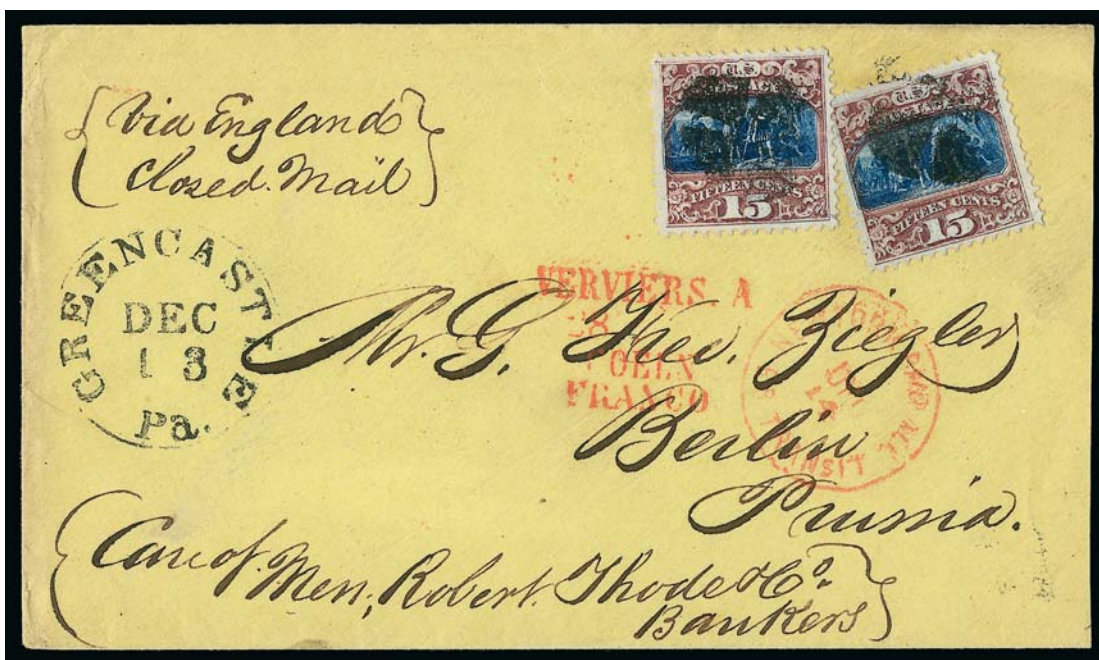 Via England
Closed Mail
U.S.
POSTAGE
FIFTEEN CENTS
15
U.S.
POSTAGE
FIFTEEN CENTS
15
GREENCASTLE
DEC
13
Pa.
VERVIERS A
COELN
FRANCO
TRANSIT
Mr. G. Theo. Ziegler
Berlin
Prussia.
Care of Mess, Robert Thode & Co.
Bankers